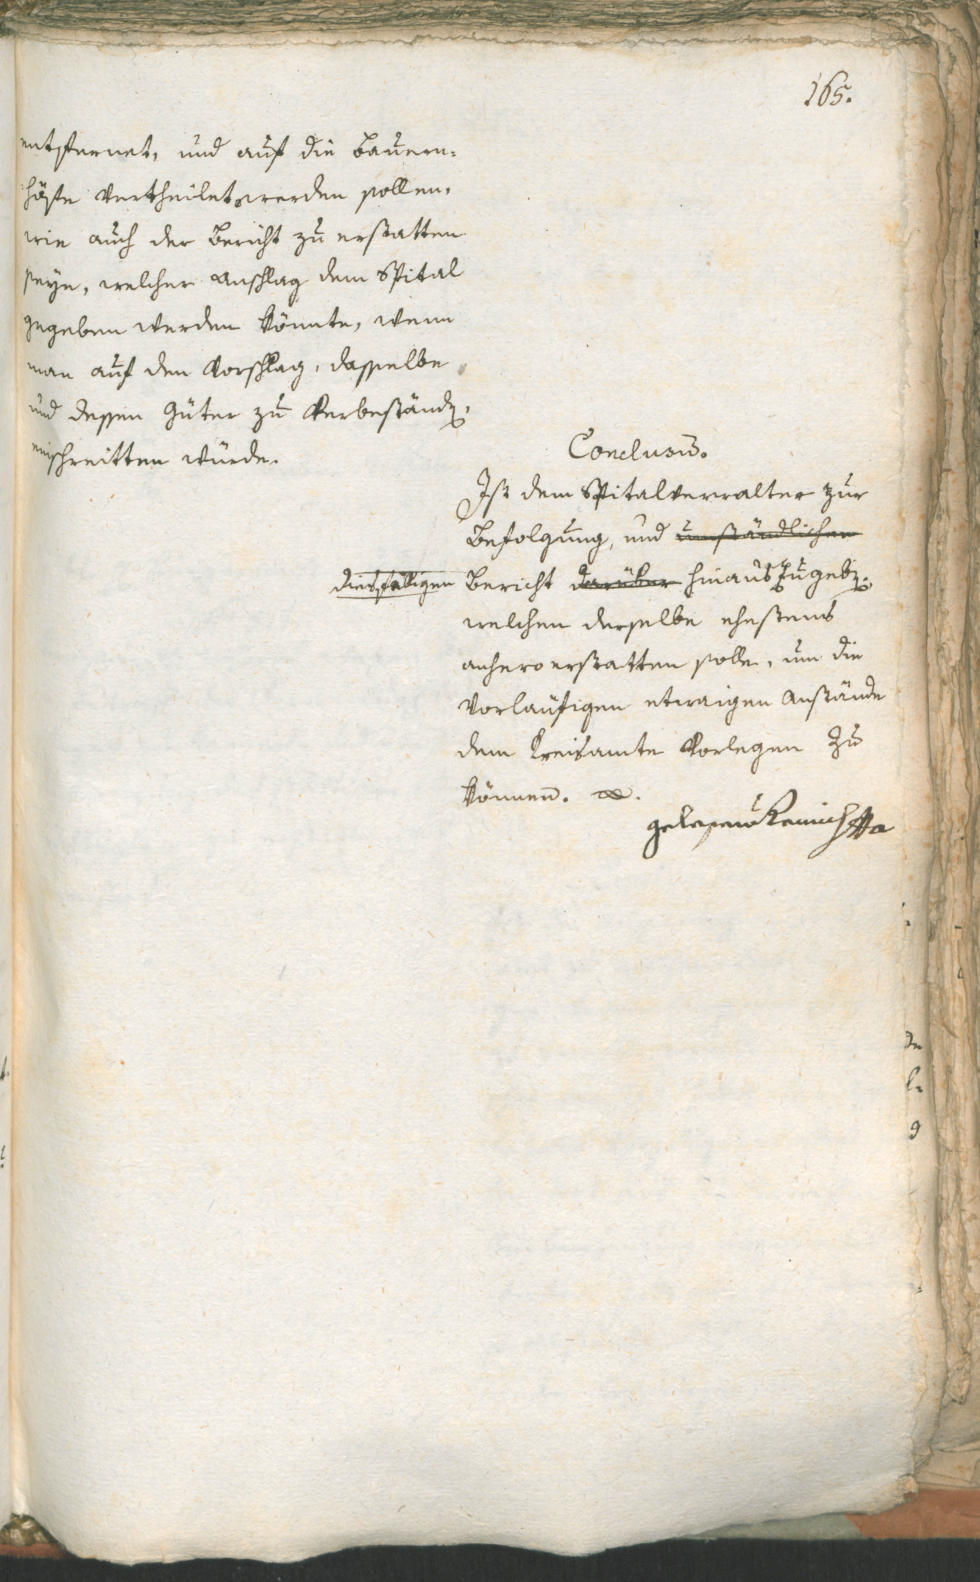 165.
entfernet, und auf die Bauern-
höfe vertheilet werden sollen,
wie auch der Bericht zu erstatten
seye, welcher Anschlag dem Spital
gegeben werden könnte, wenn
man auf den Vorschlag, dasselbe
und dessen Güter zu verbeständ.
einschreitten würde.
Conclusum.
Ist dem Spitalverwalter zur
Befolgung, und umständlichen
diesfälligen Bericht darüber hinauszugeb.
welchen derselbe ehestens
anhero erstatten solle, um die
vorläufigen etwaigen Anstände
dem Kreisamte vorlegen zu
können.
gelesen